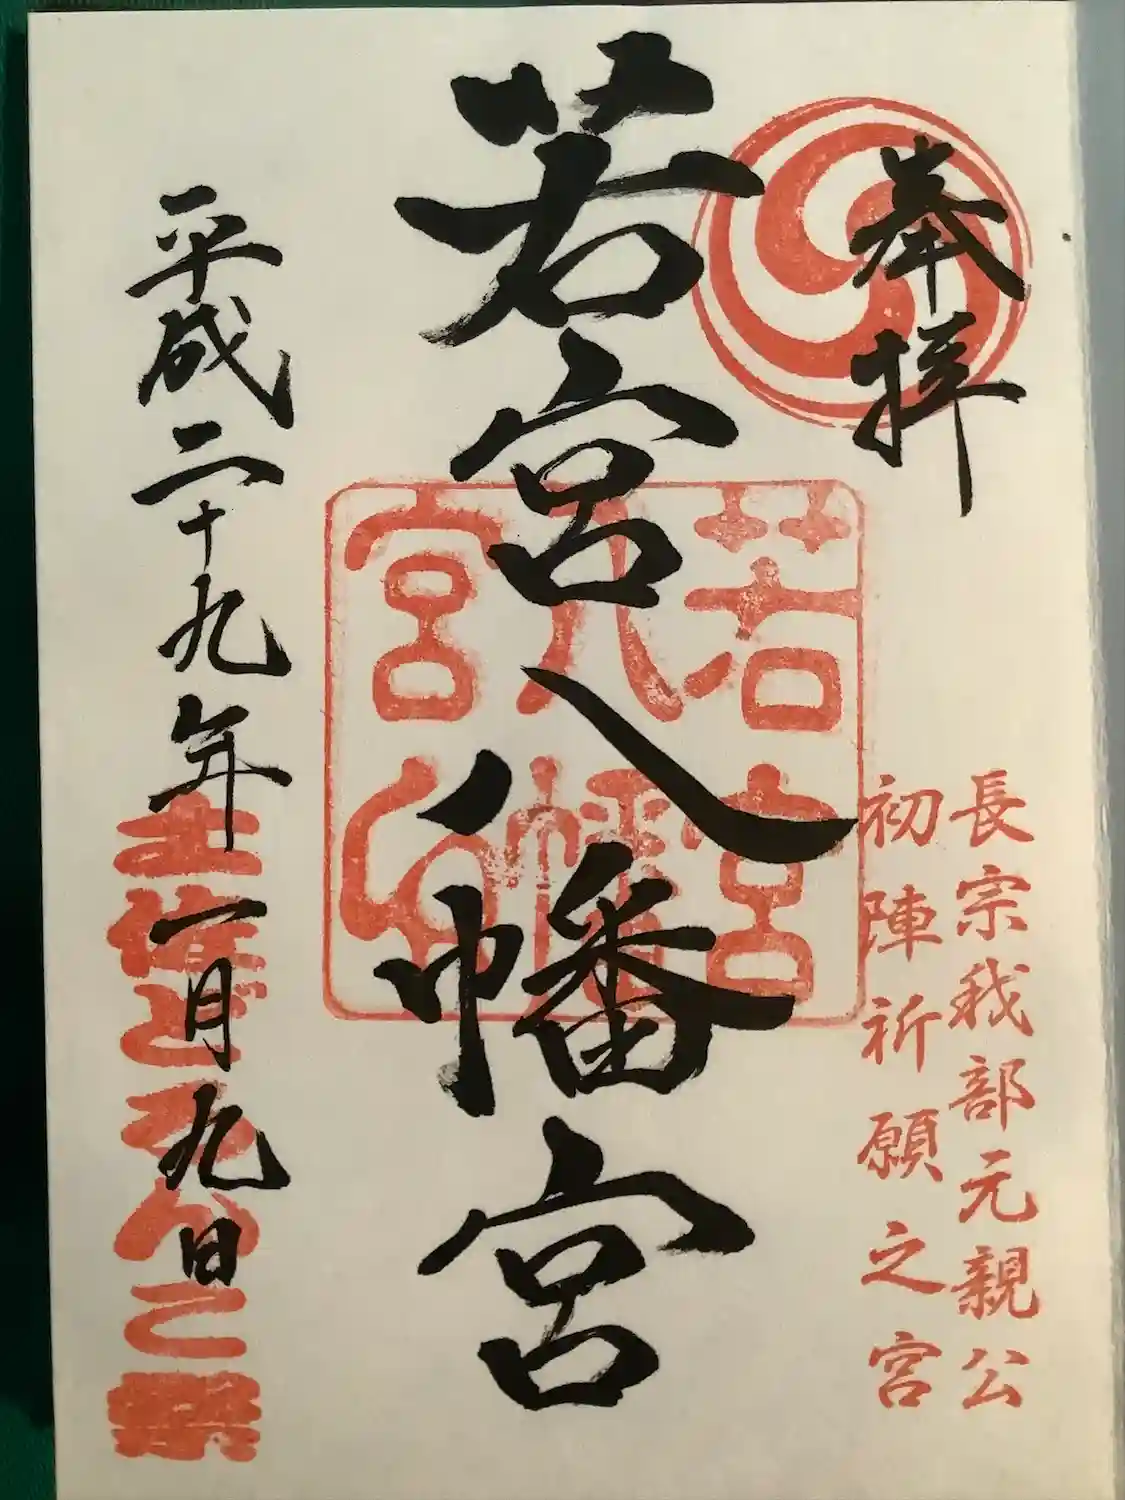 奉拝
長宗我部元親公
初陣祈願之宮
若宮八幡宮
若宮
八幡
宮
平成二十九年一月九日
土佐どろんこ祭